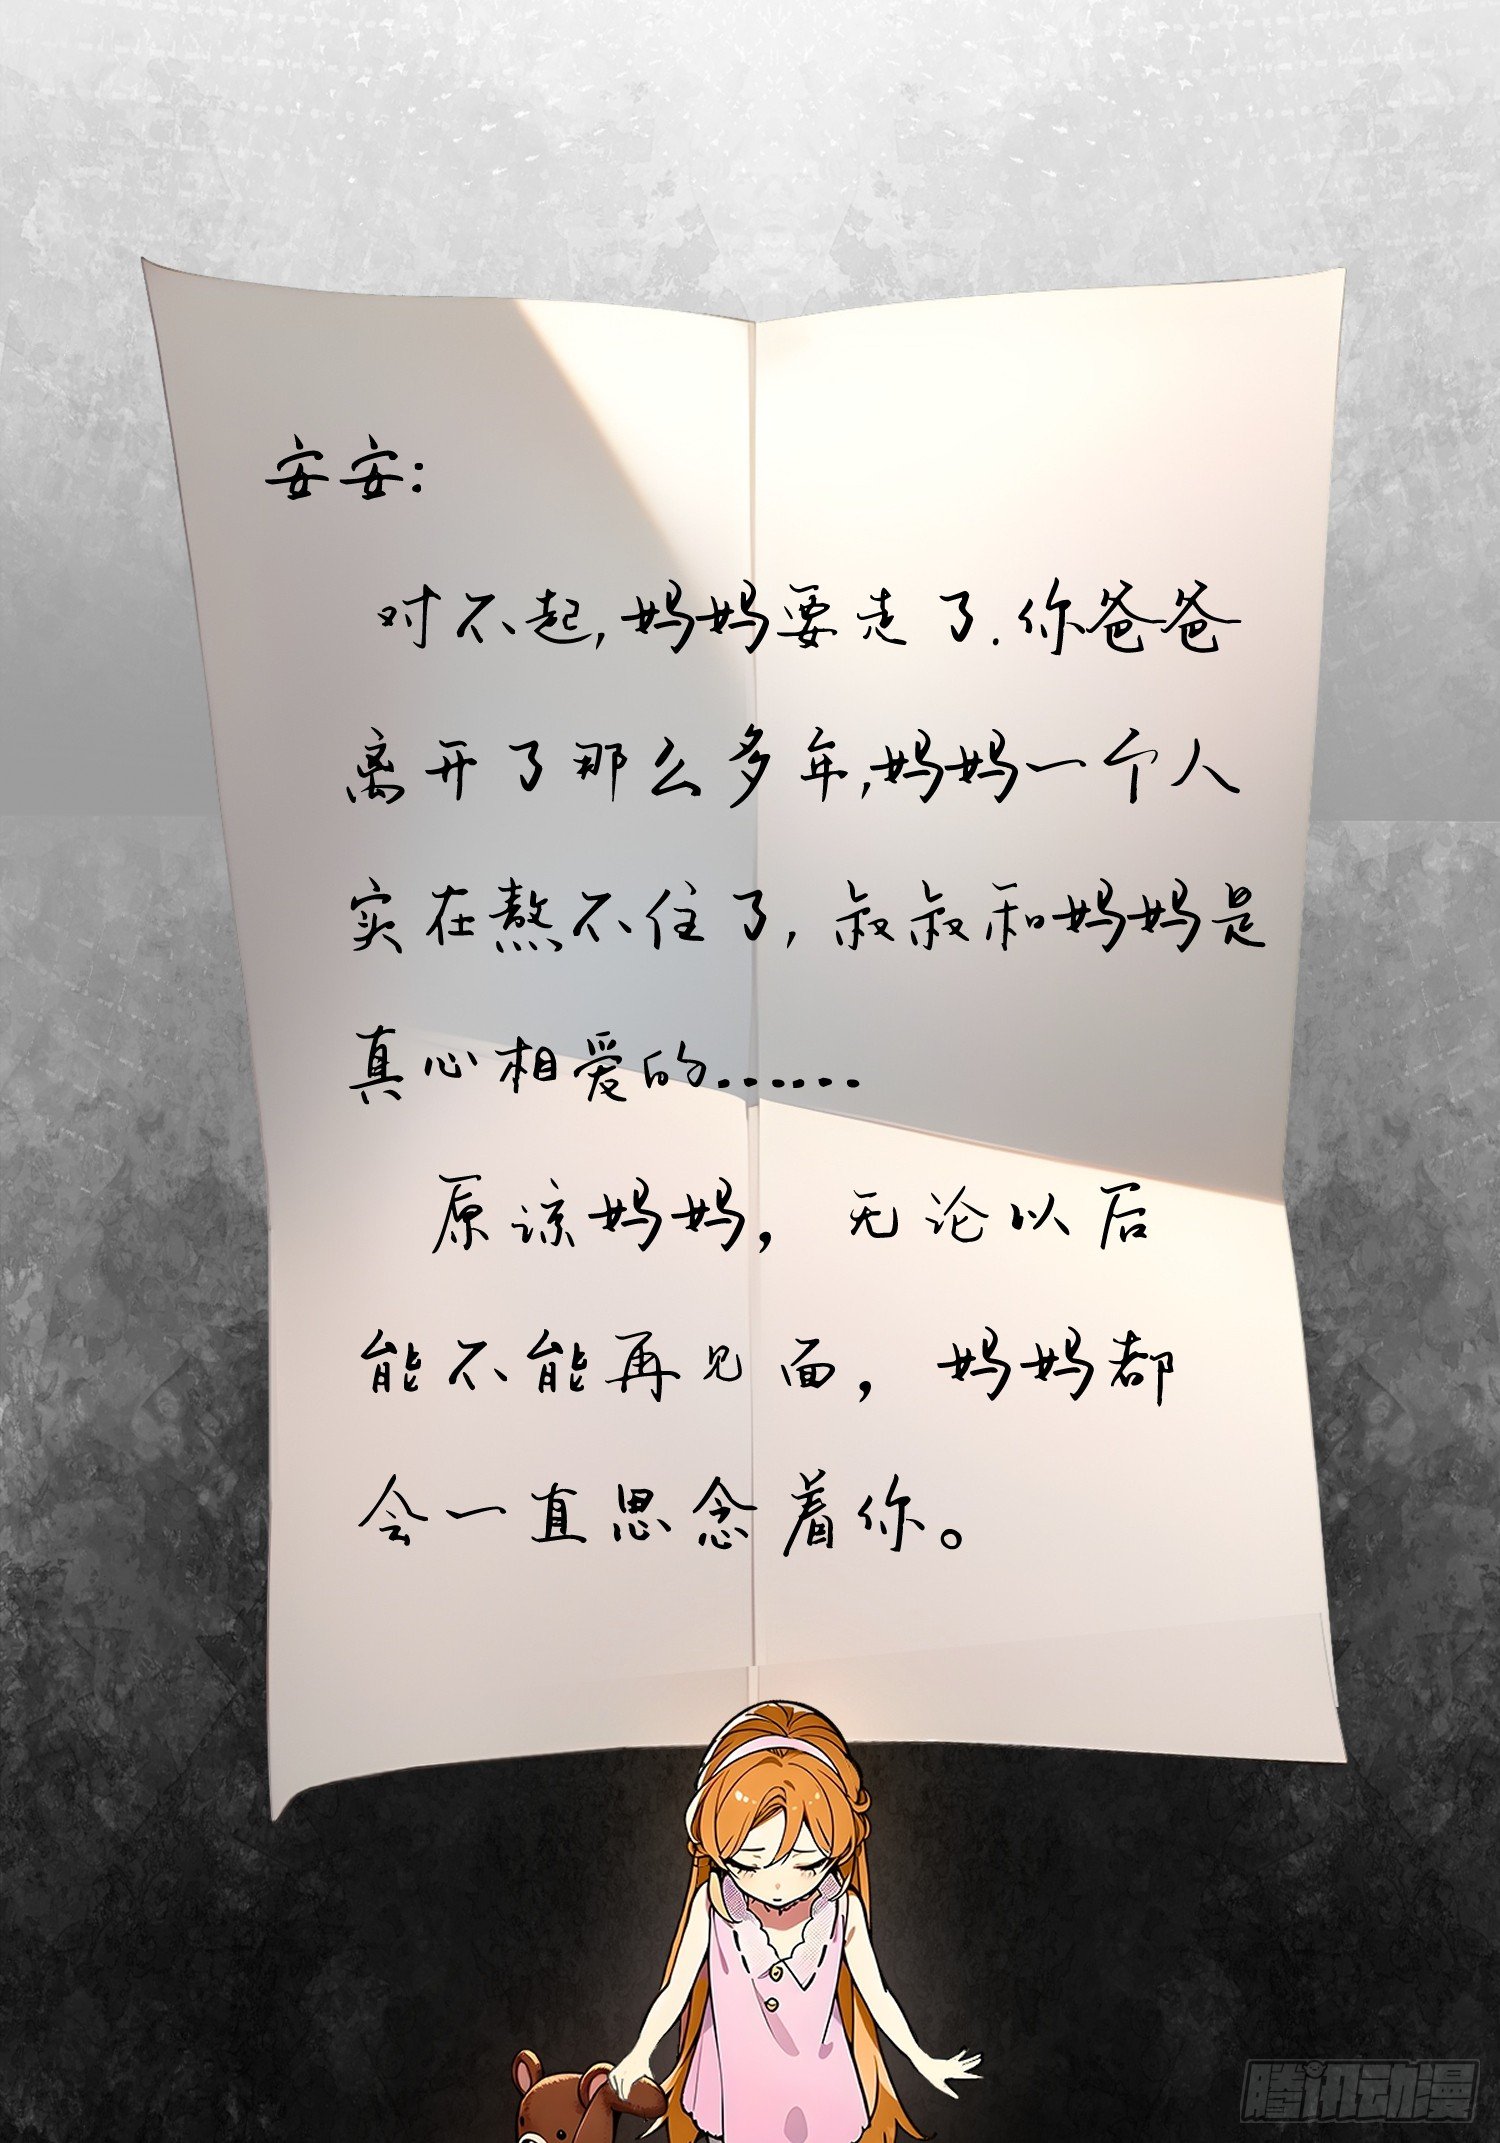 安安:
对不起,妈妈要走了.你爸爸
离开了那么多年,妈妈一个人
实在熬不住了,叔叔和妈妈是
真心相爱的......
原谅妈妈，无论以后
能不能再见面，妈妈都
会一直思念着你。
腾讯动漫